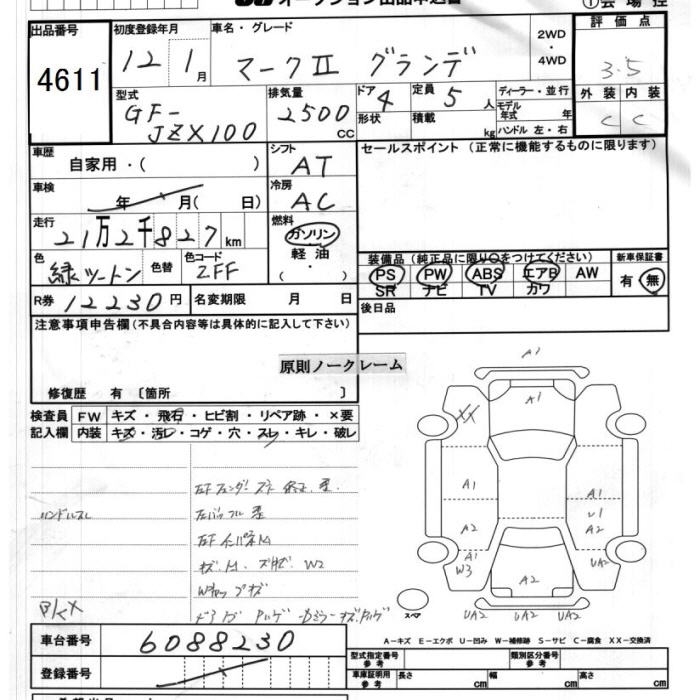 オークション出品申込書
①会場控
出品番号
4611
初度登録年月
12 1月
車名・グレード
マークⅡ グランデ
2WD・4WD
評価点
3.5
外装 内装
C C
型式
GF-JZX100
排気量
2500 CC
ドア 4
定員 5 人
形状
積載 kg
ディーラー・並行
モデル年式 年
ハンドル 左・右
車歴
自家用・( )
シフト
AT
セールスポイント(正常に機能するものに限ります)
車検
年 月( 日)
冷房
AC
走行
21万2千827km
燃料
ガソリン
軽油
・
色
緑ツートン
色替
色コード
2FF
装備品(純正品に限り○をつけてください)
PS PW ABS エアB AW
SR ナビ TV カワ
新車保証書
有・無
R券 12230円
名変期限 月 日
後日品
注意事項申告欄(不具合内容等は具体的に記入して下さい)
原則ノークレーム
修復歴 有 〔箇所 〕
検査員 FW キズ・飛石・ヒビ割・リペア跡・×要
記入欄 内装 キズ・汚レ・コゲ・穴・スレ・キレ・破レ
ハンドルスレ
A1
A1
XX
A1
A2
A1
W3
A1
U1
A2
A2
UA2
UA2 UA2 UA2
スペア
車台番号 6088230
登録番号
A-キズ E-エクボ U-凹み W-補修跡 S-サビ C-腐食 XX-交換済
型式指定番号 参考
類別区分番号 参考
車庫証明用 参考
長さ cm 幅 cm 高さ cm